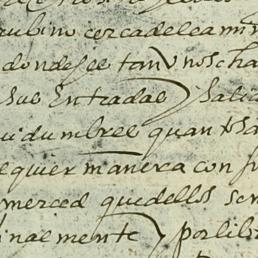 rubino cerca de la mi
donde se estan Unos cha
sus Entradas y salid
uidumbres quantas a
equier manera con f
merced que dellos sem
inalmente por libr